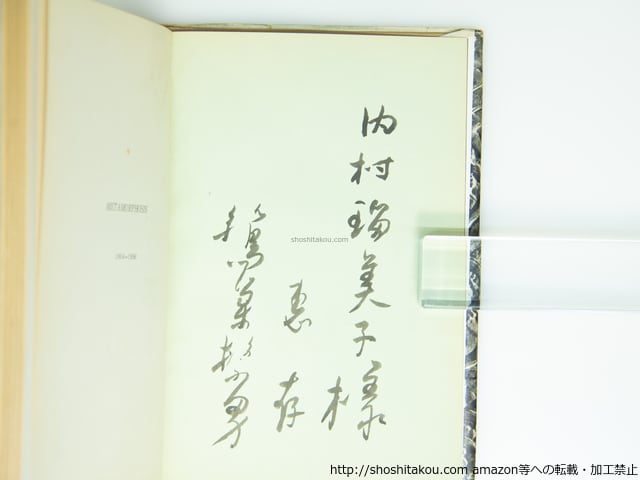 内村瑠美子様
恵存
鷲巣繁男
METAMORPHOSIS
shoshitakou.com
http://shoshitakou.com amazon等への転載・加工禁止